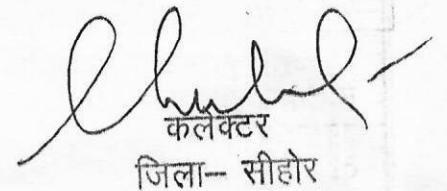 कलेक्टर
जिला– सीहोर